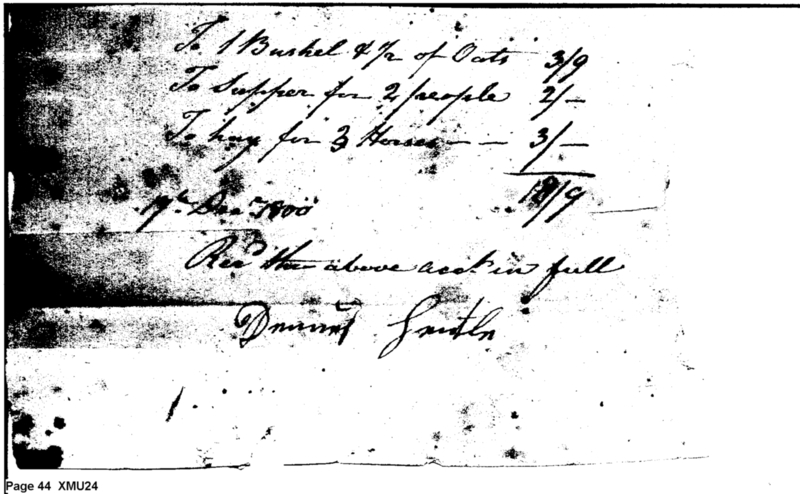 To 1 Bushel & 1/2 of Oats 3/9
To Supper for 2 people 2/–
To hay for 3 Horses – – 3/–
8/9
Decr 1800
Recd the above acct in full
Page 44 XMU24